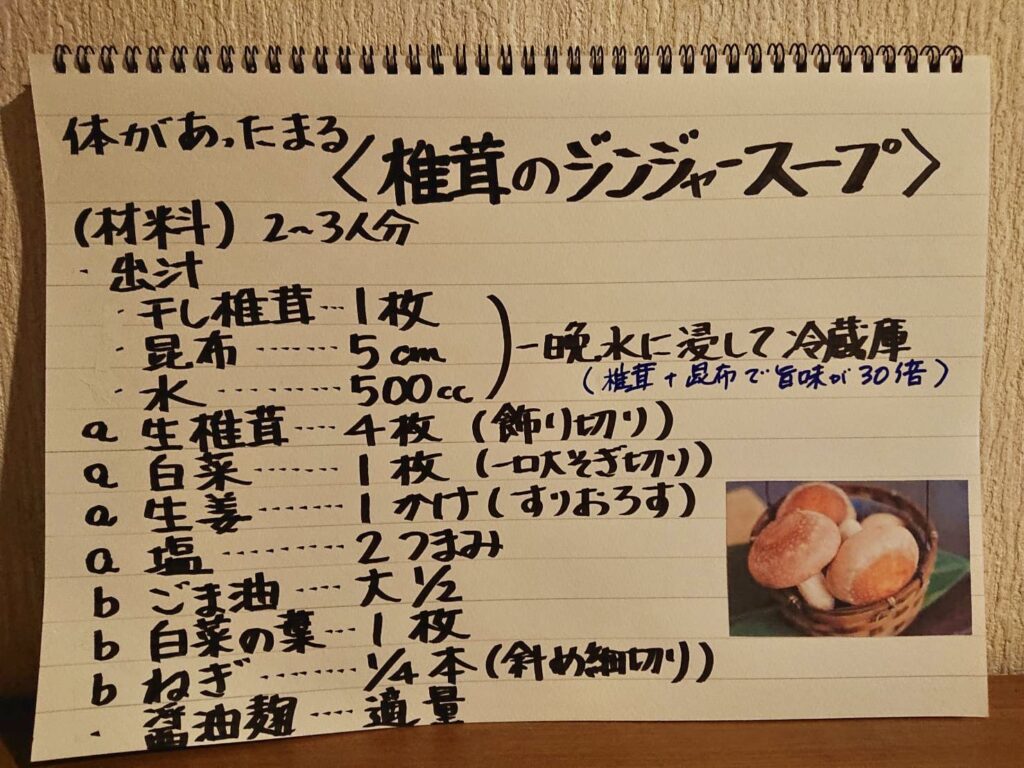 体があったまる
〈椎茸のジンジャースープ〉
(材料) 2~3人分
・出汁
・干し椎茸…1枚
・昆布……5cm
・水………500cc
一晩水に浸して冷蔵庫
(椎茸+昆布で旨味が30倍)
a 生椎茸…4枚(飾り切り)
a 白菜……1枚(一口大そぎ切り)
a 生姜……1かけ(すりおろす)
a 塩………2つまみ
b ごま油…大1/2
b 白菜の葉…1枚
b ねぎ……1/4本(斜め細切り)
・醤油麹…適量